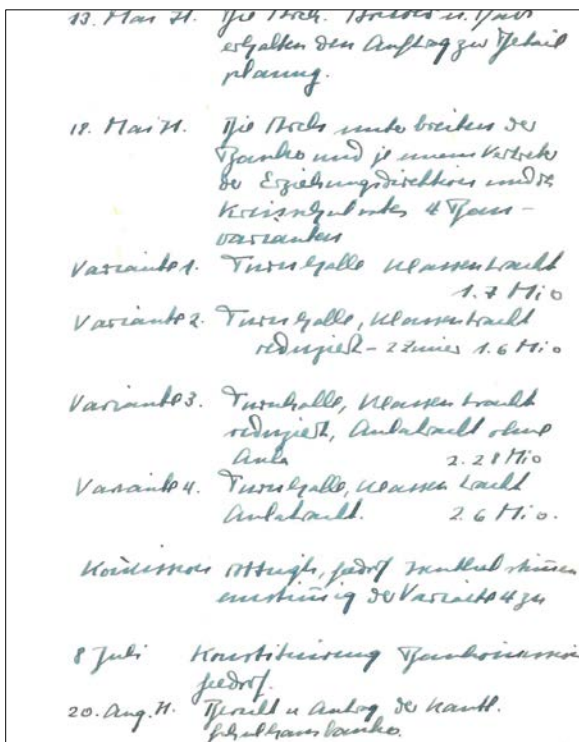 13. Mai 71. Die Arch. u.
erhalten den Auftrag zur Detail
planung.
18. Mai 71. Die Archs unterbreiten der
Bauko und je einem Vertreter
der Erziehungsdirektion und des
Kreisschulrates 4 Bau-
varianten
Variante 1. Turnhalle Klassentrakt
1.7 Mio
Variante 2. Turnhalle, Klassentrakt
reduziert - 2 Zimmer 1.6 Mio
Variante 3. Turnhalle, Klassentrakt
reduziert, Aulatrakt ohne
Aula 2.28 Mio
Variante 4. Turnhalle, Klassentrakt
Aulatrakt. 2.6 Mio.
stimmen
einstimmig der Variante 4 zu
8 Juli Konstituierung Baukommission
20. Aug. 71. Bericht u Antrag der Kantl.
Schulhausbauko.